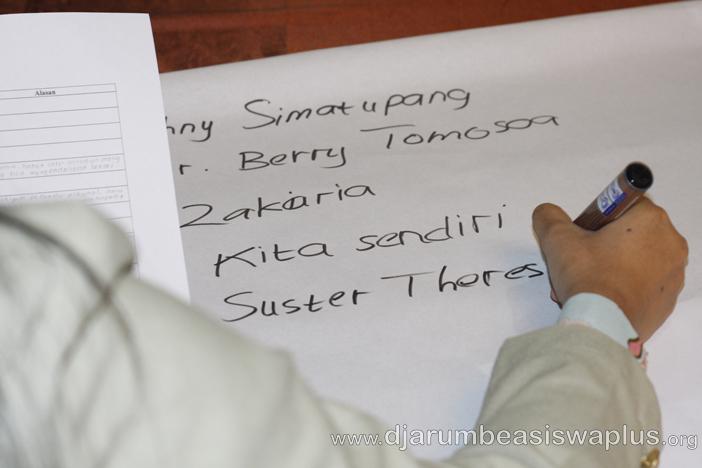 Alasan
hny Simatupang
r. Berry Tomosoa
Zakaria
Kita sendiri
Suster Theres
www.djarumbeasiswaplus.org